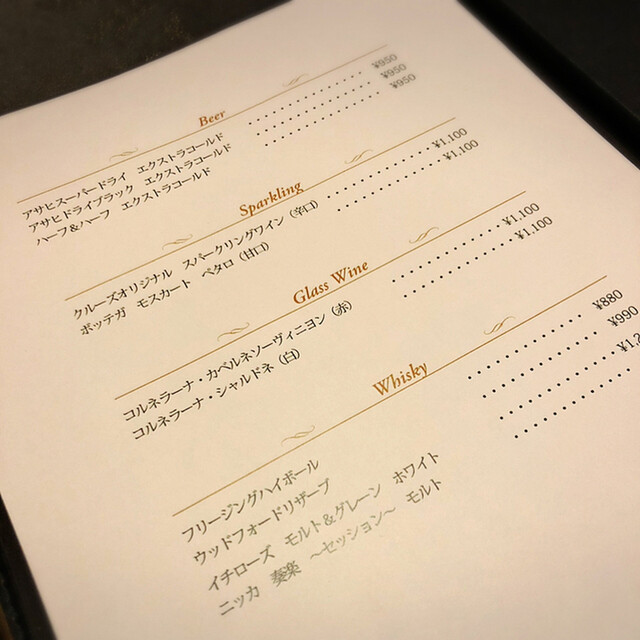 Beer
アサヒスーパードライ エクストラコールド ¥950
アサヒドライブラック エクストラコールド ¥950
ハーフ&ハーフ エクストラコールド ¥950
Sparkling
クルーズオリジナル スパークリングワイン（辛口） ¥1,100
ボッテガ モスカート ペタロ（甘口） ¥1,100
Glass Wine
コルネラーナ・カベルネソーヴィニヨン（赤） ¥1,100
コルネラーナ・シャルドネ（白） ¥1,100
Whisky
フリージングハイボール ¥880
ウッドフォードリザーブ ¥990
イチローズ モルト&グレーン ホワイト
ニッカ 奏楽 〜セッション〜 モルト